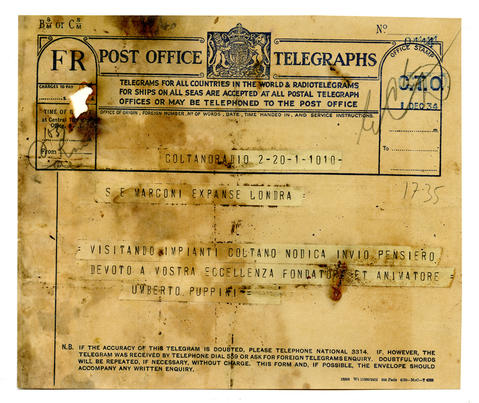 B or C
Nº
FR
POST OFFICE TELEGRAPHS
OFFICE STAMP
CHARGES TO PAY
TELEGRAMS FOR ALL COUNTRIES IN THE WORLD & RADIOTELEGRAMS
FOR SHIPS ON ALL SEAS ARE ACCEPTED AT ALL POSTAL TELEGRAPH
OFFICES OR MAY BE TELEPHONED TO THE POST OFFICE
C.T.O
1 DEC 34
TIME OF
at Central
OFFICE OF ORIGIN, FOREIGN NUMBER, Nº OF WORDS, DATE, TIME HANDED IN, AND SERVICE INSTRUCTIONS.
COLTANORADIO 2-20-1-1010-
17·35
S E MARCONI EXPANSE LONDRA =
= VISITANDO IMPIANTI COLTANO NODICA INVIO PENSIERO
DEVOTO A VOSTRA ECCELLENZA FONDATORE ET ANIMATORE =
UMBERTO PUPPINI =
N.B. IF THE ACCURACY OF THIS TELEGRAM IS DOUBTED, PLEASE TELEPHONE NATIONAL 3314. IF, HOWEVER, THE
TELEGRAM WAS RECEIVED BY TELEPHONE DIAL 559 OR ASK FOR FOREIGN TELEGRAMS ENQUIRY. DOUBTFUL WORDS
WILL BE REPEATED, IF NECESSARY, WITHOUT CHARGE. THIS FORM AND, IF POSSIBLE, THE ENVELOPE SHOULD
ACCOMPANY ANY WRITTEN ENQUIRY.